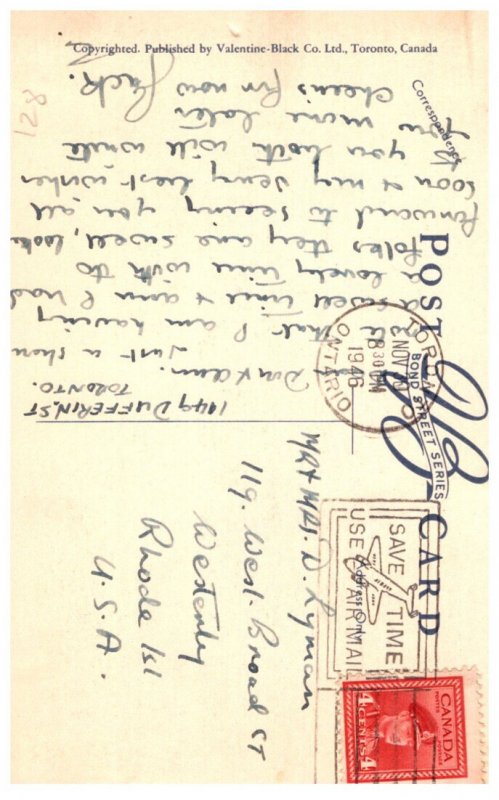 Copyrighted. Published by Valentine-Black Co. Ltd., Toronto, Canada
128
Correspondence
POST CARD
BOND STREET SERIES
Address Only
TORONTO
NOV
8 30 PM
1946
ONTARIO
SAVE TIME
USE AIR MAIL
CANADA
POSTES POSTAGE
4 CENTS 4
1149 DUFFERIN, ST
TORONTO.
Just a short
that I am having
a swell time & am had
a lovely time with to
folks they are swell, look
forward to seeing you all
soon & my very best wishes
you both will write
you more later
cheers for now
Jack.
MR & MRS. D. Lyman
119. West. Broad ST
Westerly
Rhode Isl
U.S.A.